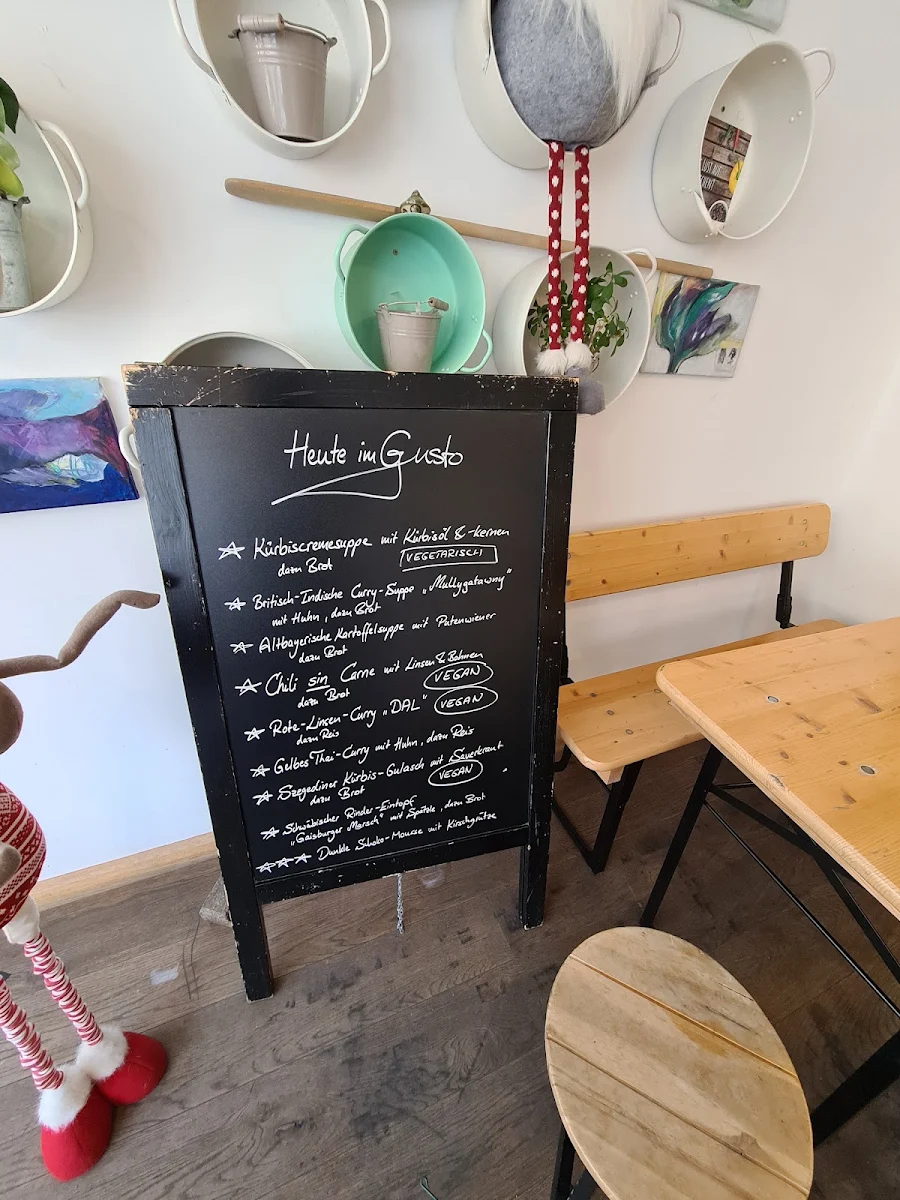 Heute im Gusto
Kürbiscremesuppe mit Kürbisöl & -kernen
dazu Brot VEGETARISCH
Britisch-Indische Curry-Suppe „Mullygatawny"
mit Huhn, dazu Brot
Altbayerische Kartoffelsuppe mit Putenwiener
dazu Brot
Chili sin Carne mit Linsen & Bohnen
dazu Brot VEGAN
Rote-Linsen-Curry „DAL" VEGAN
dazu Reis
Gelbes Thai-Curry mit Huhn, dazu Reis
Szegediner Kürbis-Gulasch mit Sauerkraut
dazu Brot VEGAN
Schwäbischer Rinder-Eintopf
„Gaisburger Marsch" mit Spätzle, dazu Brot
Dunkle Schoko-Mousse mit Kirschgrütze